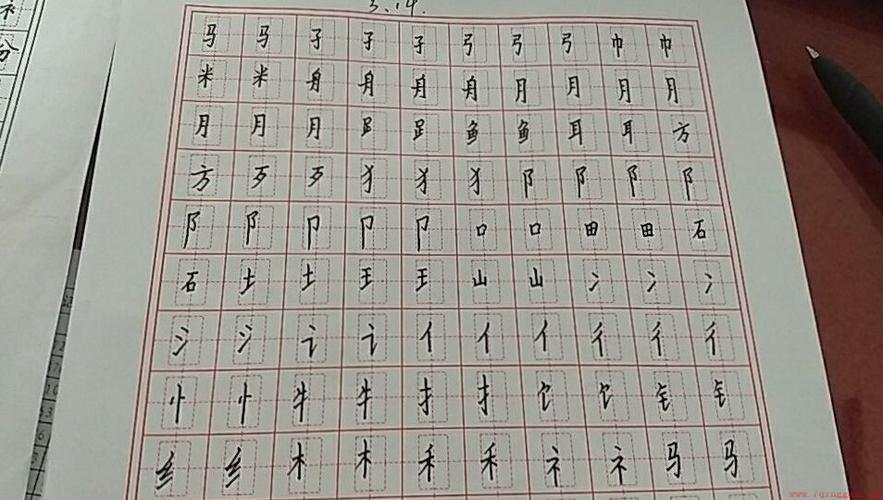 3.14.
马 马 子 子 子 弓 弓 弓 巾 巾
米 米 舟 舟 舟 舟 月 月 月 月
月 月 月 𧾷 𧾷 鱼 鱼 耳 耳 方
方 歹 歹 犭 犭 犭 阝 阝 阝 阝
阝 阝 卩 卩 卩 口 口 田 田 石
石 土 土 王 王 山 山 冫 冫 冫
氵 氵 讠 讠 亻 亻 亻 彳 彳 彳
忄 忄 牜 牜 扌 扌 饣 饣 钅 钅
纟 纟 木 木 禾 禾 礻 礻 马 马
份